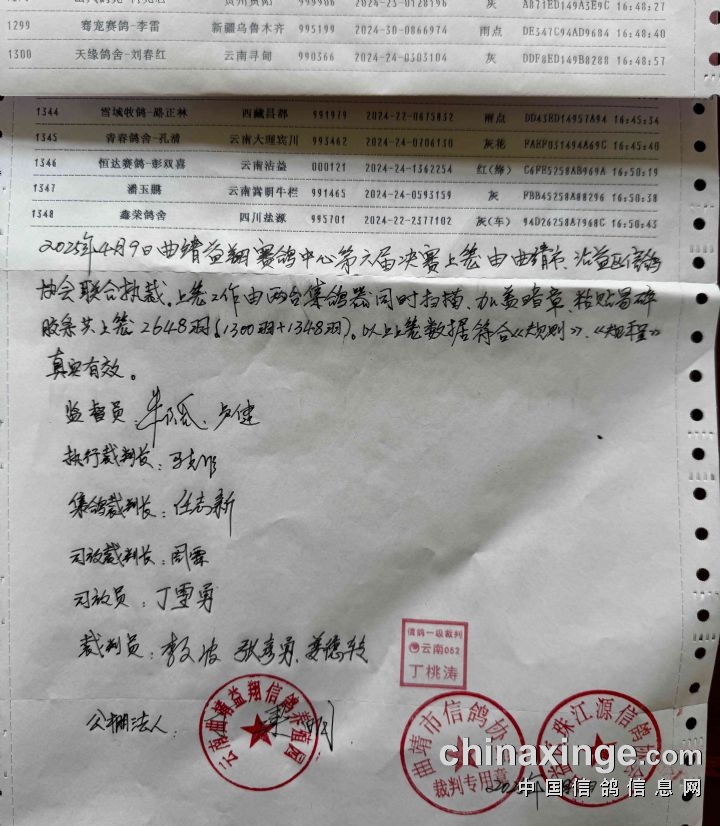 999986 2024-23-0128196 灰 AB71ED149A3E9C 16:48:27
1299 骞宠赛鸽-李雷 新疆乌鲁木齐 995199 2024-30-0866974 雨点 DE347C94AD9684 16:48:40
1300 天缘鸽舍-刘春红 云南寻甸 990366 2024-24-0303104 灰 DDF8ED149B8288 16:48:57
1344 雪域牧鸽-路正林 西藏昌都 991979 2024-22-0675832 雨点 DD43ED14957A94 16:45:34
1345 青春鸽舍-孔清 云南大理宾川 993462 2024-24-0706130 灰花 FAEF031494A69C 16:45:40
1346 恒达赛鸽-彭双喜 云南沾益 000121 2024-24-1362254 红(绛) C6FE5258AB969A 16:50:19
1347 潘玉麒 云南嵩明牛栏 991465 2024-24-0593159 灰 FBB45258A88296 16:50:38
1348 鑫荣鸽舍 四川盐源 995701 2024-22-2377102 灰(车) 94D26258A7968C 16:50:43
2025年4月9日曲靖益翔赛鸽中心第六届决赛上笼由曲靖市、沾益区信鸽
协会联合执裁。上笼工作由两台集鸽器同时扫描,加盖暗章,粘贴易碎
胶条共上笼2648羽(1300羽+1348羽)。以上上笼数据符合《规则》、《规程》
真实有效。
监督员: 卢健
执行裁判长:
集鸽裁判长:任志新
司放裁判长:周霖
司放员:丁雪勇
裁判员:李文波 张彦勇
信鸽一级裁判
云南052
丁桃涛
公棚法人:
云南曲靖益翔信鸽养殖园
曲靖市信鸽协
裁判专用章
珠江源信鸽
chinaxinge.com
中国信鸽信息网